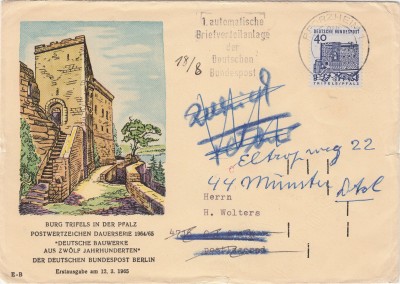 1. automatische
Briefverteilanlage
der
Deutschen
Bundespost
18/8
DEUTSCHE BUNDESPOST
40
TRIFELS/PFALZ
Zurück
Eltropweg 22
44 Münster
Herrn
H. Wolters
BURG TRIFELS IN DER PFALZ
POSTWERTZEICHEN DAUERSERIE 1964/65
"DEUTSCHE BAUWERKE
AUS ZWÖLF JAHRHUNDERTEN"
DER DEUTSCHEN BUNDESPOST BERLIN
Erstausgabe am 12. 3. 1965
E-B